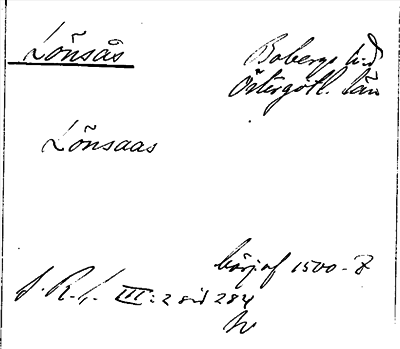 Lönsås
Bobergs h:d
Östergötl. län
Lönsaas
börj af 1500-t
S. R. S. III: 2 sid 284